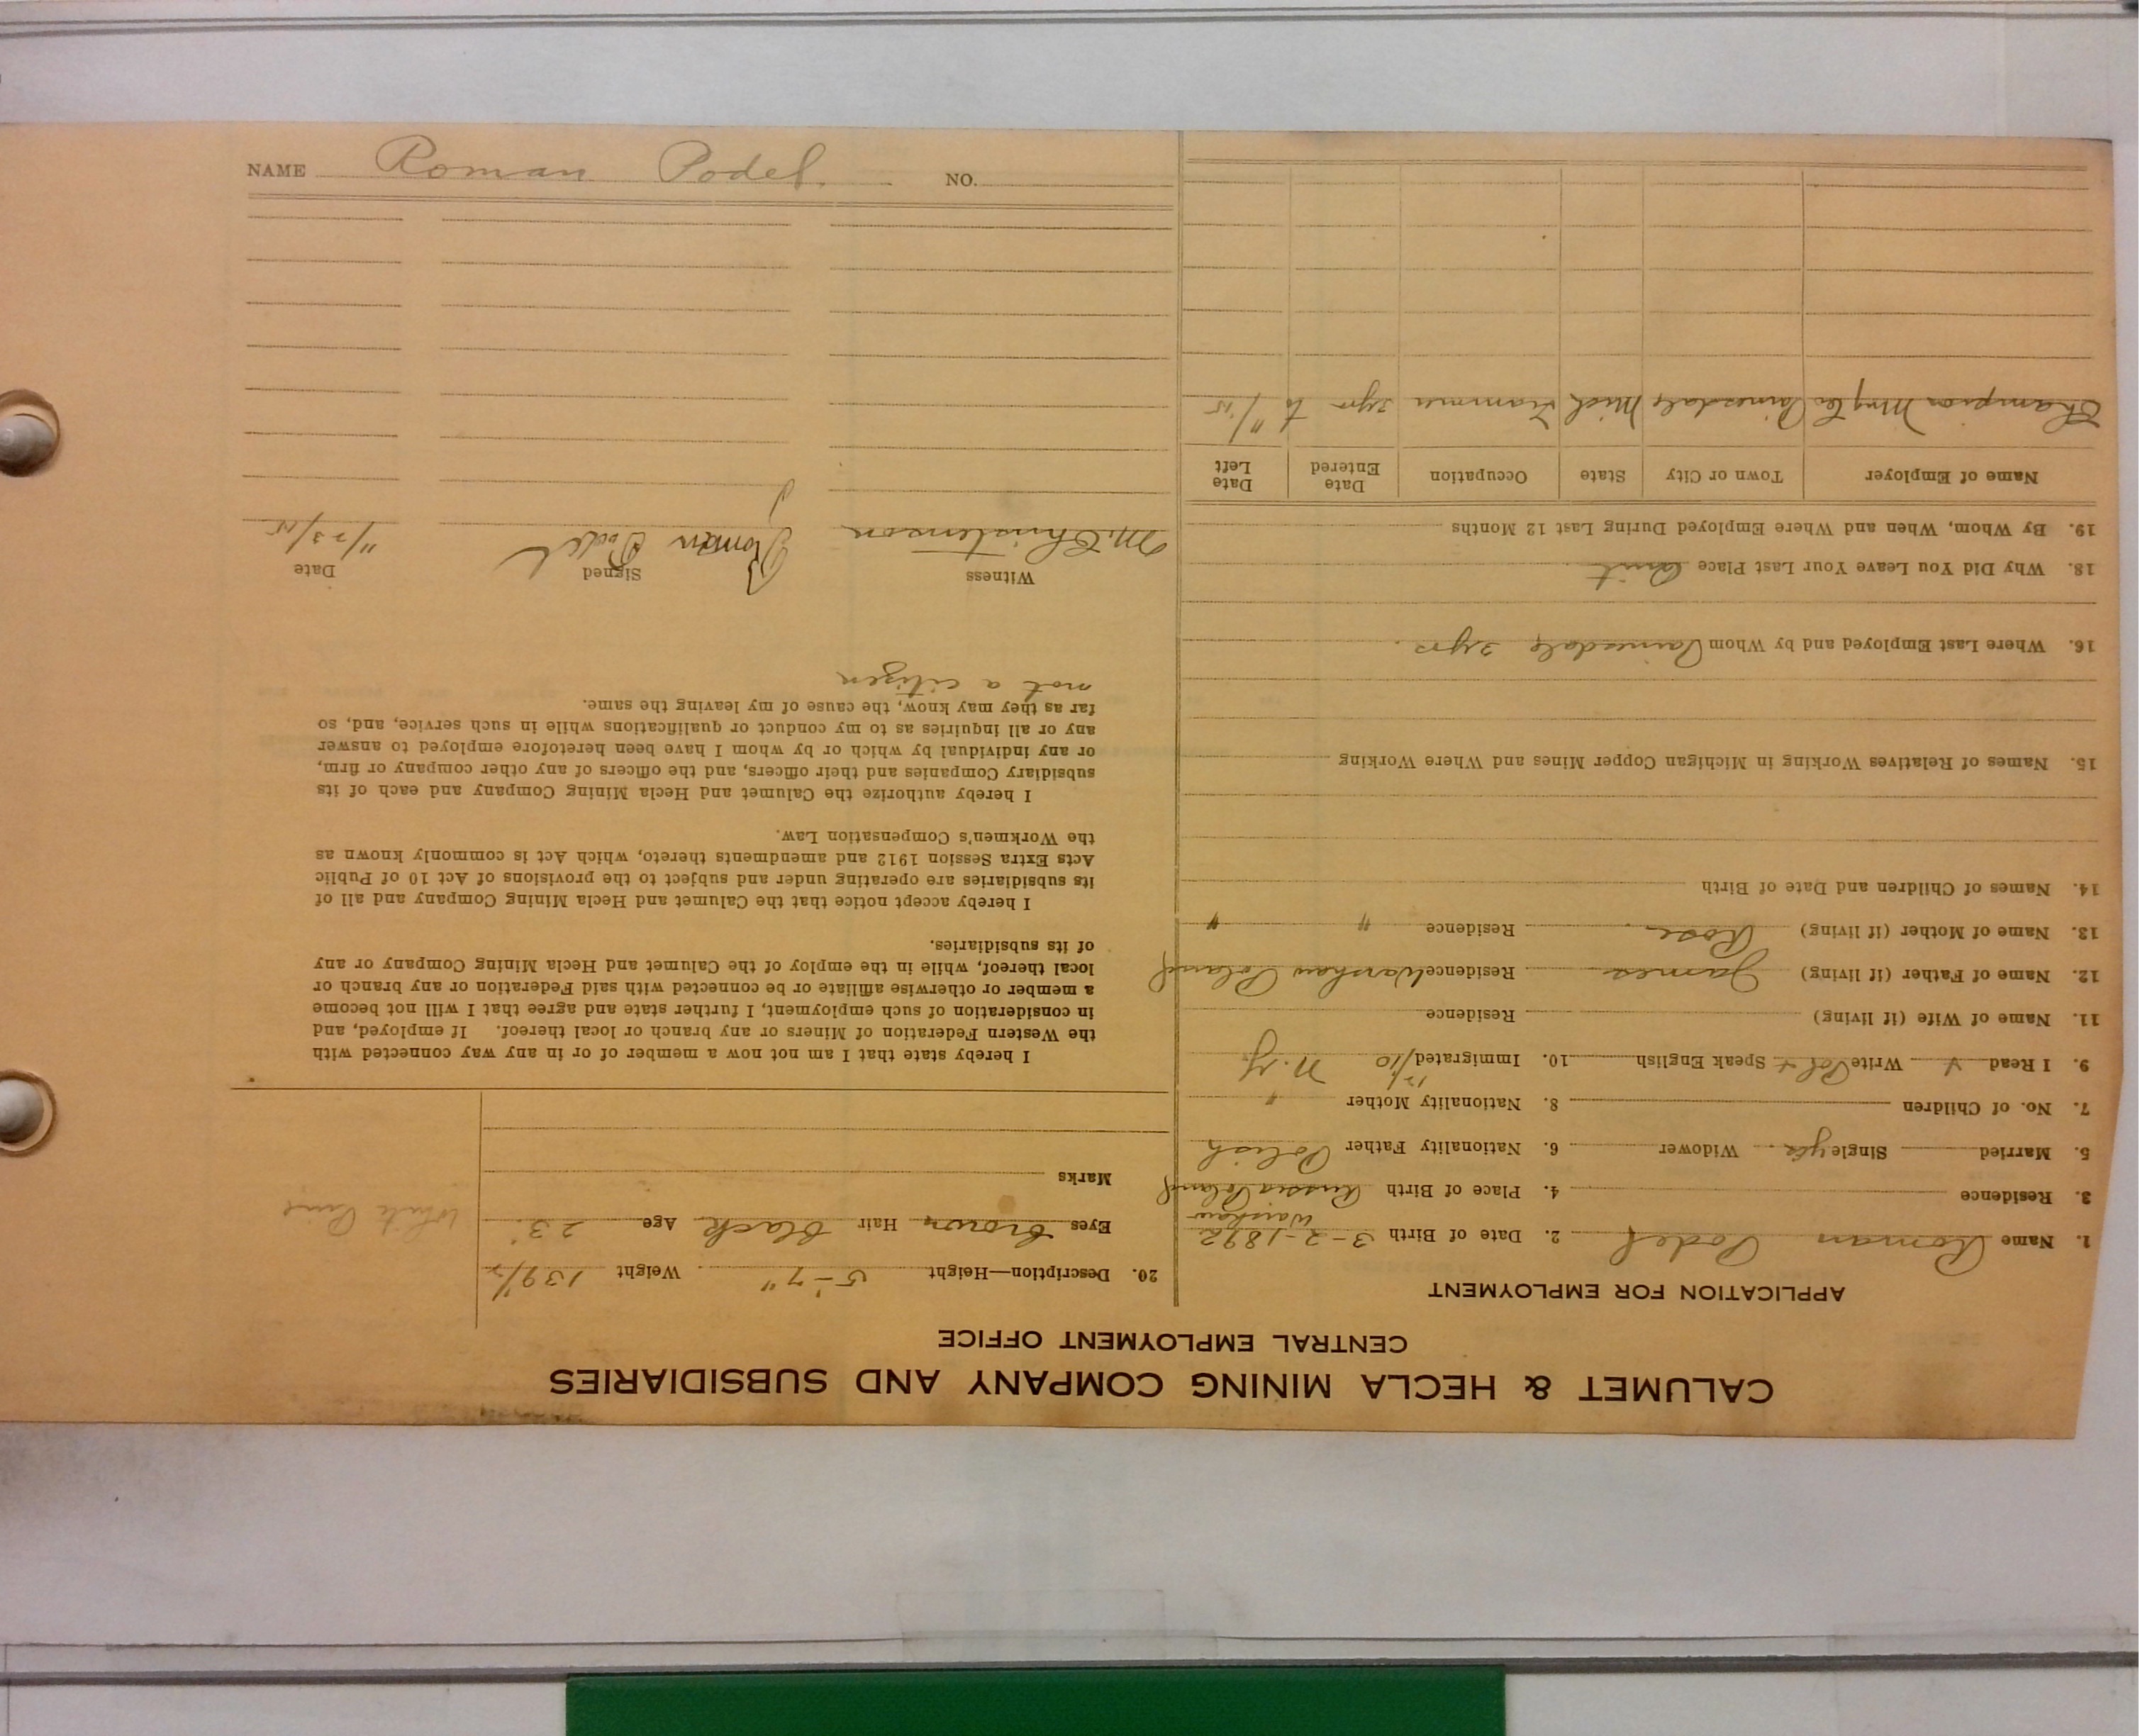 CALUMET & HECLA MINING COMPANY AND SUBSIDIARIES
CENTRAL EMPLOYMENT OFFICE
APPLICATION FOR EMPLOYMENT
1. Name Roman Podel 2. Date of Birth 3-2-1892
Warshaw
3. Residence 4. Place of Birth Russia Poland
5. Married Single yes Widower 6. Nationality Father Polish
7. No. of Children 8. Nationality Mother "
9. I Read + Write Pol + Speak English 10. Immigrated 12/10 N.Y.
11. Name of Wife (if living) Residence
12. Name of Father (if living) James Residence Warshaw Poland
13. Name of Mother (if living) Rose Residence " "
14. Names of Children and Date of Birth
15. Names of Relatives Working in Michigan Copper Mines and Where Working
16. Where Last Employed and by Whom Painesdale 2 yrs.
18. Why Did You Leave Your Last Place Quit
19. By Whom, When and Where Employed During Last 12 Months
Name of Employer Town or City State Occupation Date Entered Date Left
Champion Mng Co Painesdale Mich Trammer 2 yrs to 11/15
20. Description—Height 5'-7" Weight 139 1/2
Eyes brown Hair black Age 23.
Marks
White Pine
I hereby state that I am not now a member of or in any way connected with
the Western Federation of Miners or any branch or local thereof. If employed, and
in consideration of such employment, I further state and agree that I will not become
a member or otherwise affiliate or be connected with said Federation or any branch or
local thereof, while in the employ of the Calumet and Hecla Mining Company or any
of its subsidiaries.
I hereby accept notice that the Calumet and Hecla Mining Company and all of
its subsidiaries are operating under and subject to the provisions of Act 10 of Public
Acts Extra Session 1912 and amendments thereto, which Act is commonly known as
the Workmen's Compensation Law.
I hereby authorize the Calumet and Hecla Mining Company and each of its
subsidiary Companies and their officers, and the officers of any other company or firm,
or any individual by which or by whom I have been heretofore employed to answer
any or all inquiries as to my conduct or qualifications while in such service, and, so
far as they may know, the cause of my leaving the same.
not a citizen
Witness Signed Date
M. Christenson Roman Podel 11/23/15
NAME Roman Podel. NO.